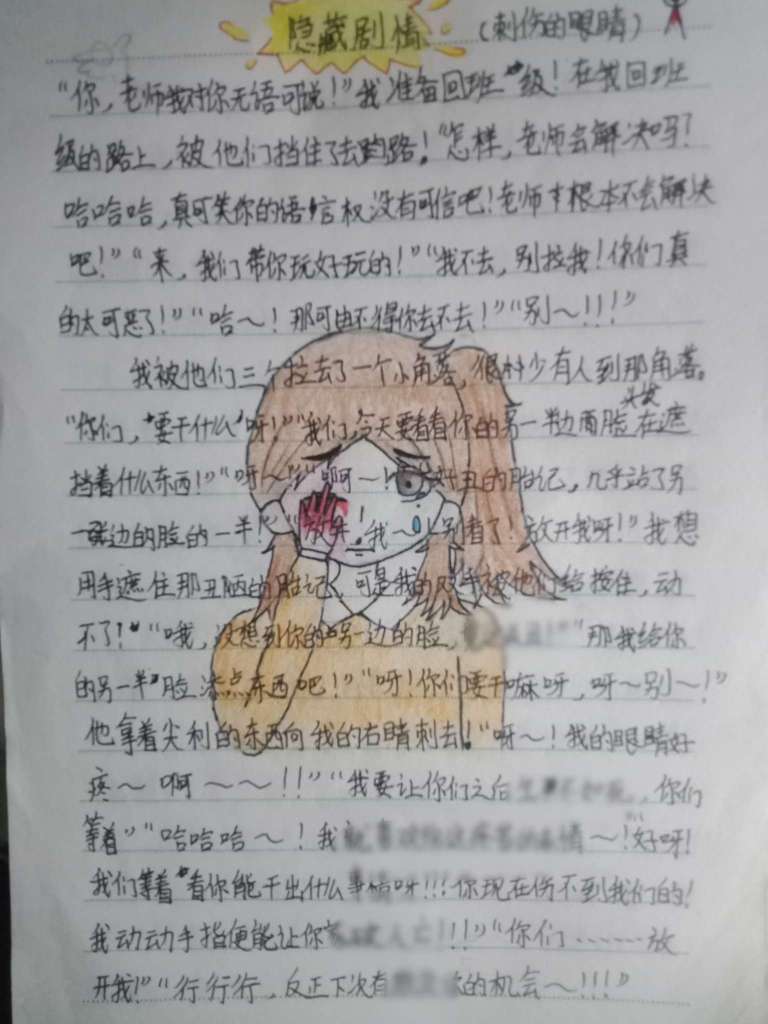 隐藏剧情 （刺伤的眼睛）
“你，老师我对你无语可说！”我准备回班级！在我回班
级的路上，被他们挡住了去路！“怎样，老师会解决吗？
哈哈哈，真可笑你的语言权没有可信吧！老师根本不会解决
吧！”“来，我们带你玩好玩的！”“我不去，别拉我！你们真
的太可恶了！”“哈～！那可由不得你去不去！”“别～！！！”
我被他们三个拉去了一个小角落，很少有人到那角落。
“你们，要干什么呀！”“我们今天要看看你的另一半边面脸头发在遮
挡着什么东西！”“呀～！”“啊～！好丑的胎记，几乎站了另
一边的脸的一半！”“放开，我～！别看了！放开我呀！”我想
用手遮住那丑陋的胎记，可是我的双手被他们给按住，动
不了！“哦，没想到你的另一边的脸，”那我给你
的另一半脸添点东西吧！”“呀！你们要干嘛呀，呀～别～！”
他拿着尖利的东西向我的右睛刺去！“呀～！我的眼睛好
疼～啊～～！！”“我要让你们之后，你们
等着”“哈哈哈～！我～！”“好呀！
我们等着看你能干出什么事情呀！！！你现在伤不到我们的！
我动动手指便能让你！！”“你们……放
开我！”“行行行，反正下次有的机会～！！！”